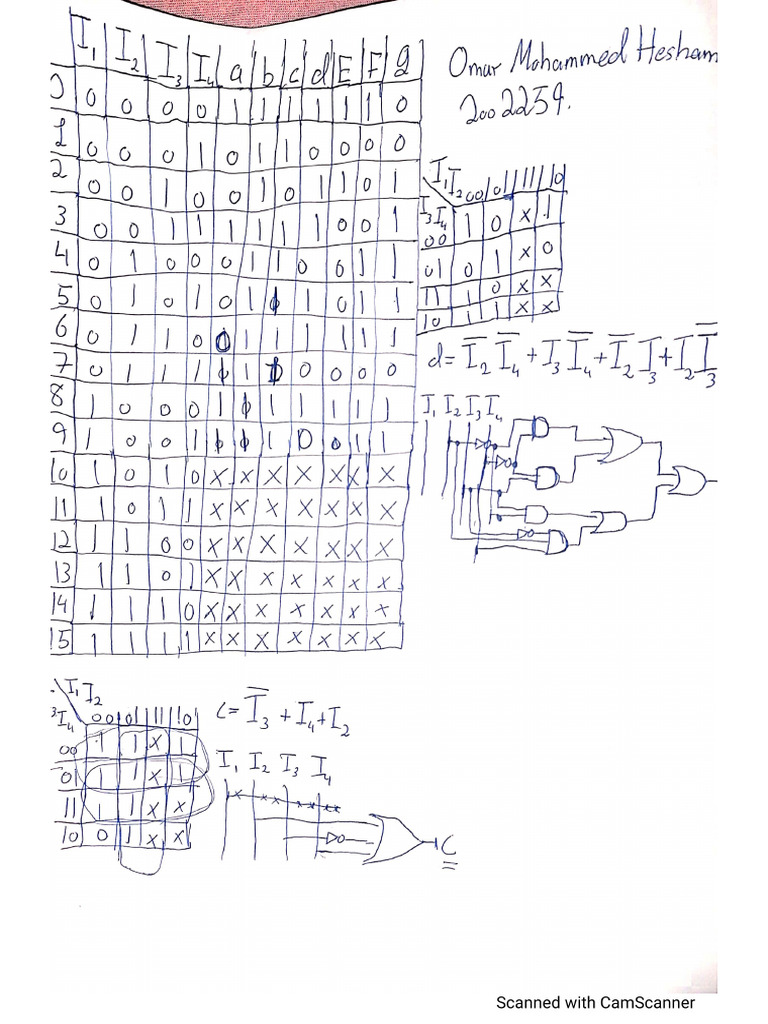 I₁ I₂ I₃ I₄ a b c d E F g
0 0 0 0 0 1 1 1 1 1 1 0
1 0 0 0 1 0 1 1 0 0 0 0
2 0 0 1 0 0 1 0 1 1 0 1
3 0 0 1 1 1 1 1 1 0 0 1
4 0 1 0 0 0 1 1 0 0 1 1
5 0 1 0 1 0 1 1 0 1 1
6 0 1 1 0 0 1 1 1 1 1 1
7 0 1 1 1 1 0 0 0 0
8 1 0 0 0 1 1 1 1 1 1
9 1 0 0 1 1 0 0 1 1
10 1 0 1 0 X X X X X X X
11 1 0 1 1 X X X X X X X
12 1 1 0 0 X X X X X X X
13 1 1 0 1 X X X X X X X
14 1 1 1 0 X X X X X X X
15 1 1 1 1 X X X X X X X
Omar Mohammed Hesham
2002259.
I₁ I₂ 00 01 11 10
I₃ I₄
00 1 0 X 1
01 0 1 X 0
11 1 0 X X
10 1 1 X X
d = I̅₂ I̅₄ + I₃ I̅₄ + I̅₂ I₃ + I₂ I̅₃
I₁ I₂ I₃ I₄
I₁ I₂
3 I₄ 00 01 11 10
00 1 1 X 1
01 1 1 X 1
11 1 1 X X
10 0 1 X X
C = I̅₃ + I₄ + I₂
I₁ I₂ I₃ I₄
C
Scanned with CamScanner